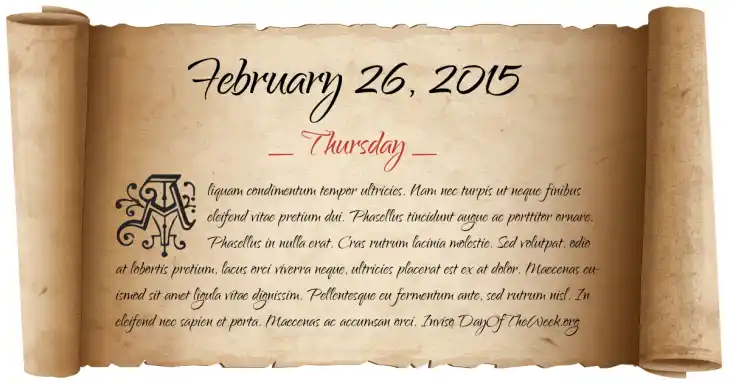 February 26, 2015
Thursday
Aliquam condimentum tempor ultricies. Nam nec turpis ut neque finibus
eleifend vitae pretium dui. Phasellus tincidunt augue ac porttitor ornare.
Phasellus in nulla erat. Cras rutrum lacinia molestie. Sed volutpat, odio
at lobortis pretium, lacus orci viverra neque, ultricies placerat est ex at dolor. Maecenas eu-
ismod sit amet ligula vitae dignissim. Pellentesque eu fermentum ante, sed rutrum nisl. In
eleifend nec sapien et porta. Maecenas ac accumsan orci. Invise DayOfTheWeek.org